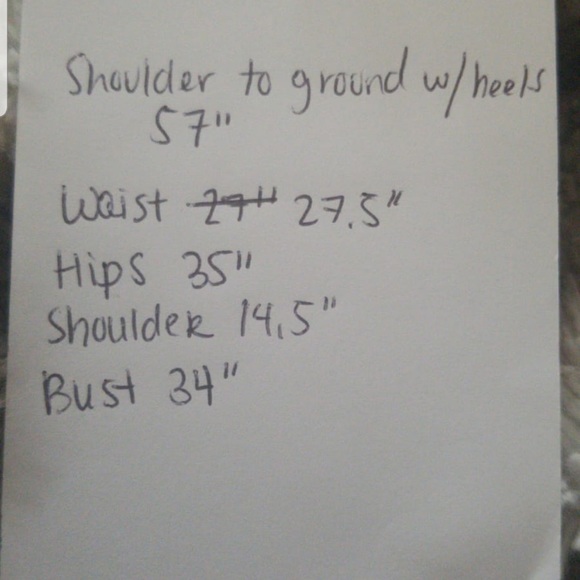 Shoulder to ground w/heels
57"
Waist 27" 27.5"
Hips 35"
Shoulder 14.5"
Bust 34"